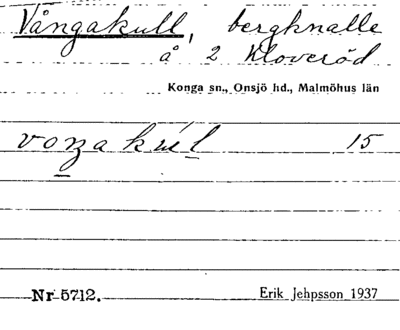 Vångakull, bergknalle
å 2 Kloveröd
Konga sn., Onsjö hd., Malmöhus län
15
Nr 5712.
Erik Jehpsson 1937